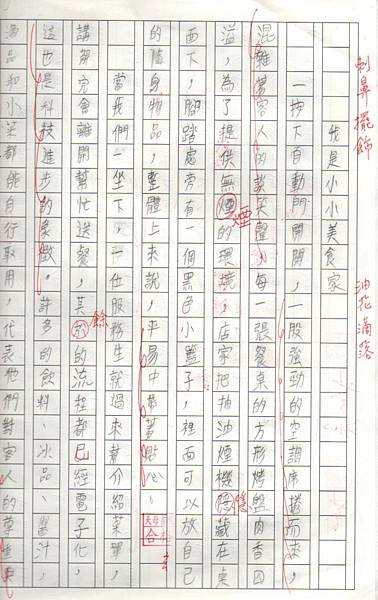 我是小小美食家
一按下自動門開關，一股強勁的空調席捲而來，
混雜著客人的談笑聲，每一張餐桌的方形烤盤肉香四
溢，為了提供無煙的環境，店家把抽油煙機隱藏在桌
面下，腳踏處旁有一個黑色小籃子，裡面可以放自己
的隨身物品，整體上來說，平易中帶著貼心、
當我們一坐下，一位服務生就過來幫介紹菜單，
講解完會離開幫忙送餐，其他的流程都已經電子化，
這也是科技進步的象徵。許多的飲料、冰品、醬汁，
湯品和小菜都能自行取用，代表他們對客人的尊重與
刺鼻 擺飾
油花滴落
煙
隱
餘
合